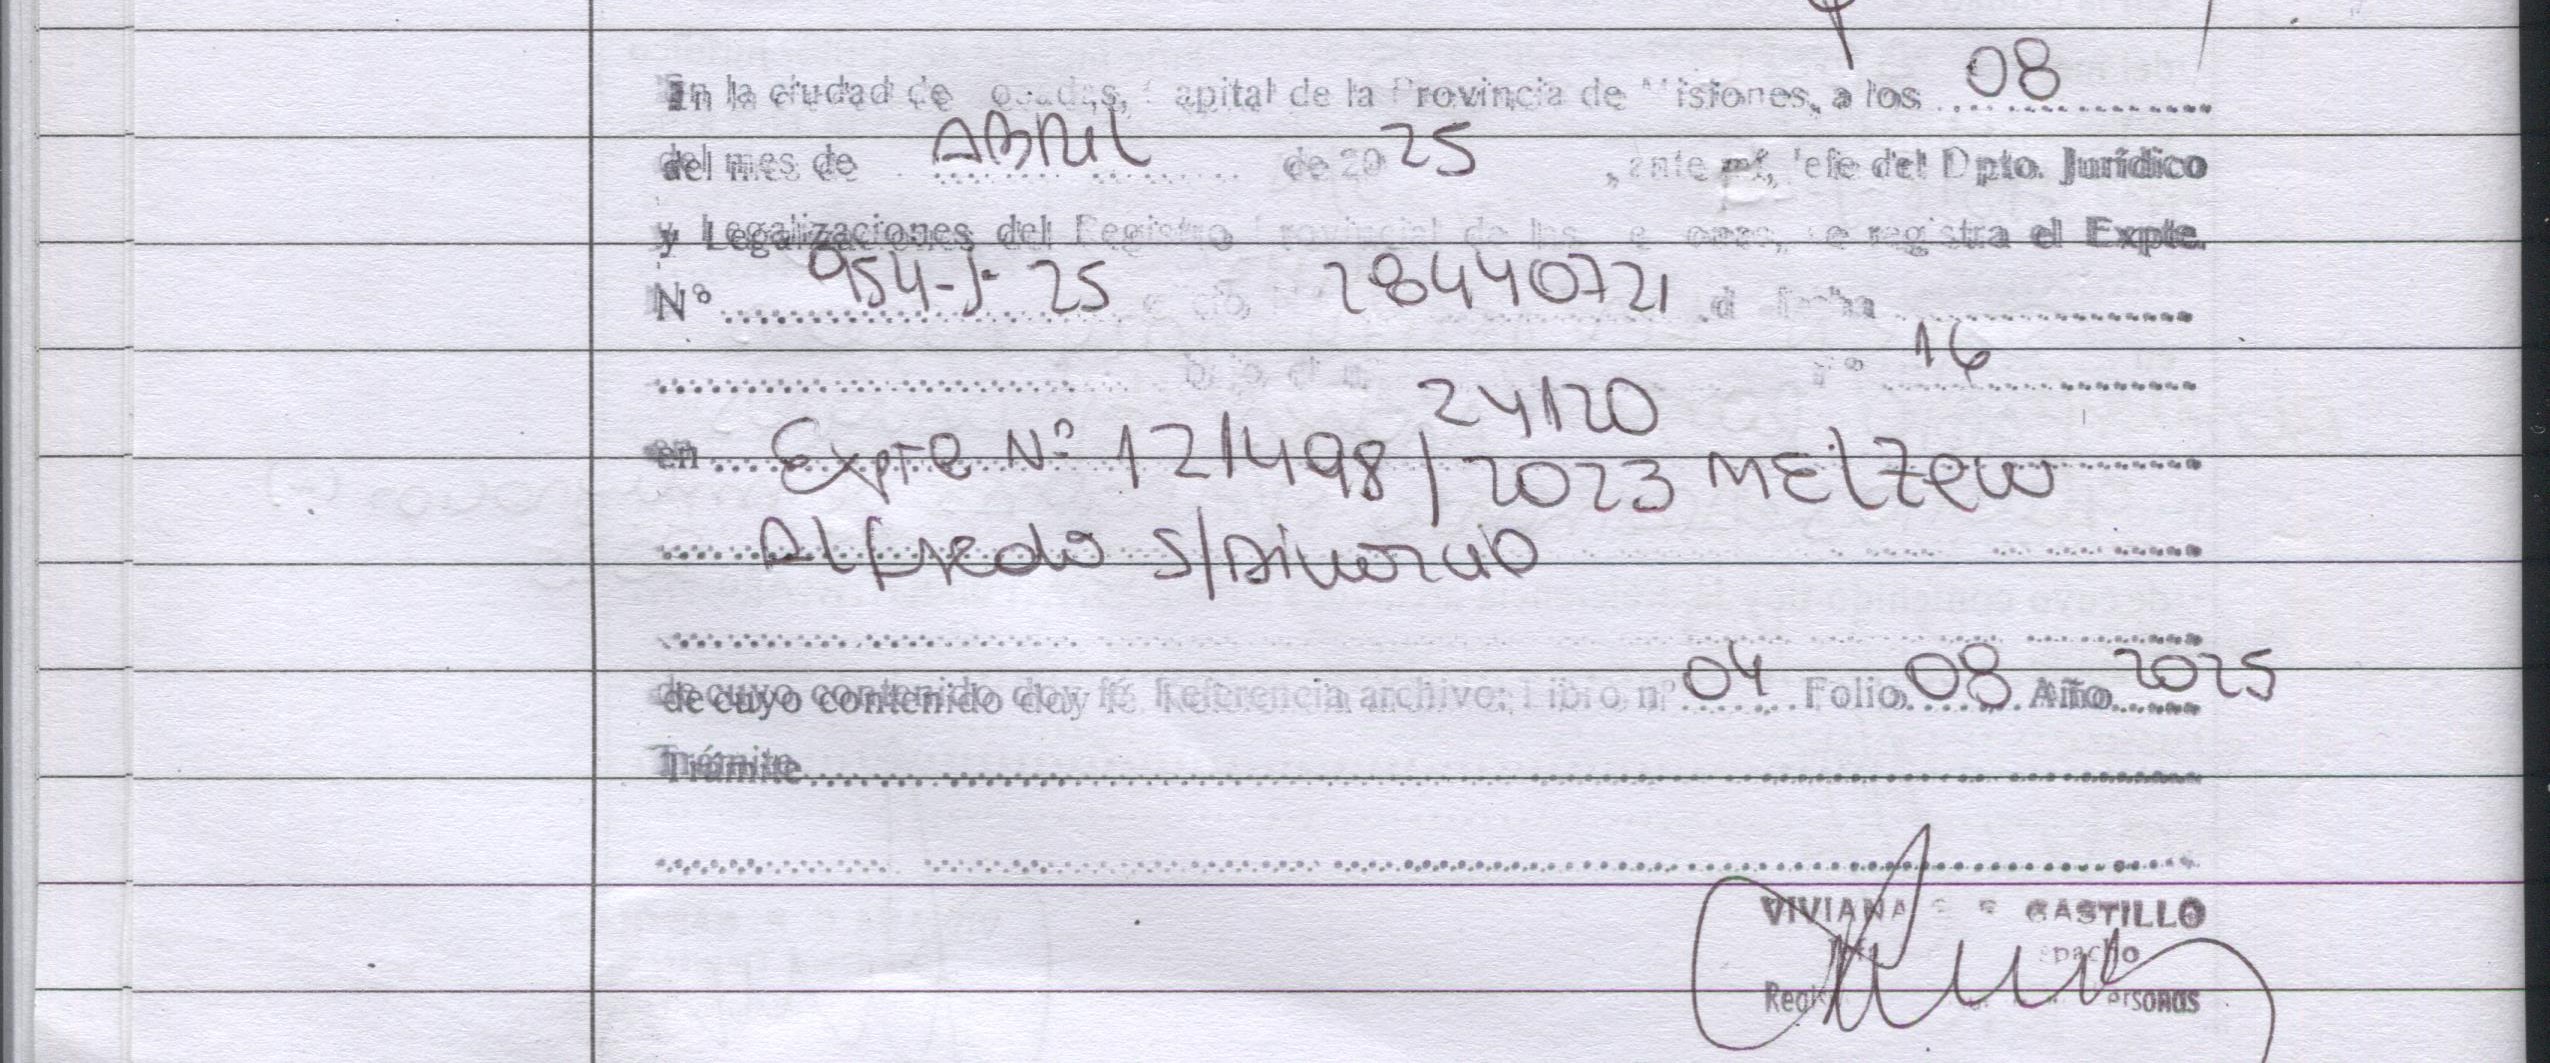 En la ciudad de Posadas, Capital de la Provincia de Misiones, a los 08
del mes de ABRIL de 20 25, ante mí, Jefe del Dpto. Jurídico
y Legalizaciones del Registro Provincial de las Personas, se registra el Expte.
N° 954-J-25 28440721 de fecha
bajo el n° 24120 N° 16
en Expte Nº 121498/2023 MELZEW
Alfredo S/Divorcio
de cuyo contenido doy fé Referencia archivo: Libro nº 04 Folio 08 Año 2025
Trámite
VIVIANA CASTILLO
Personas